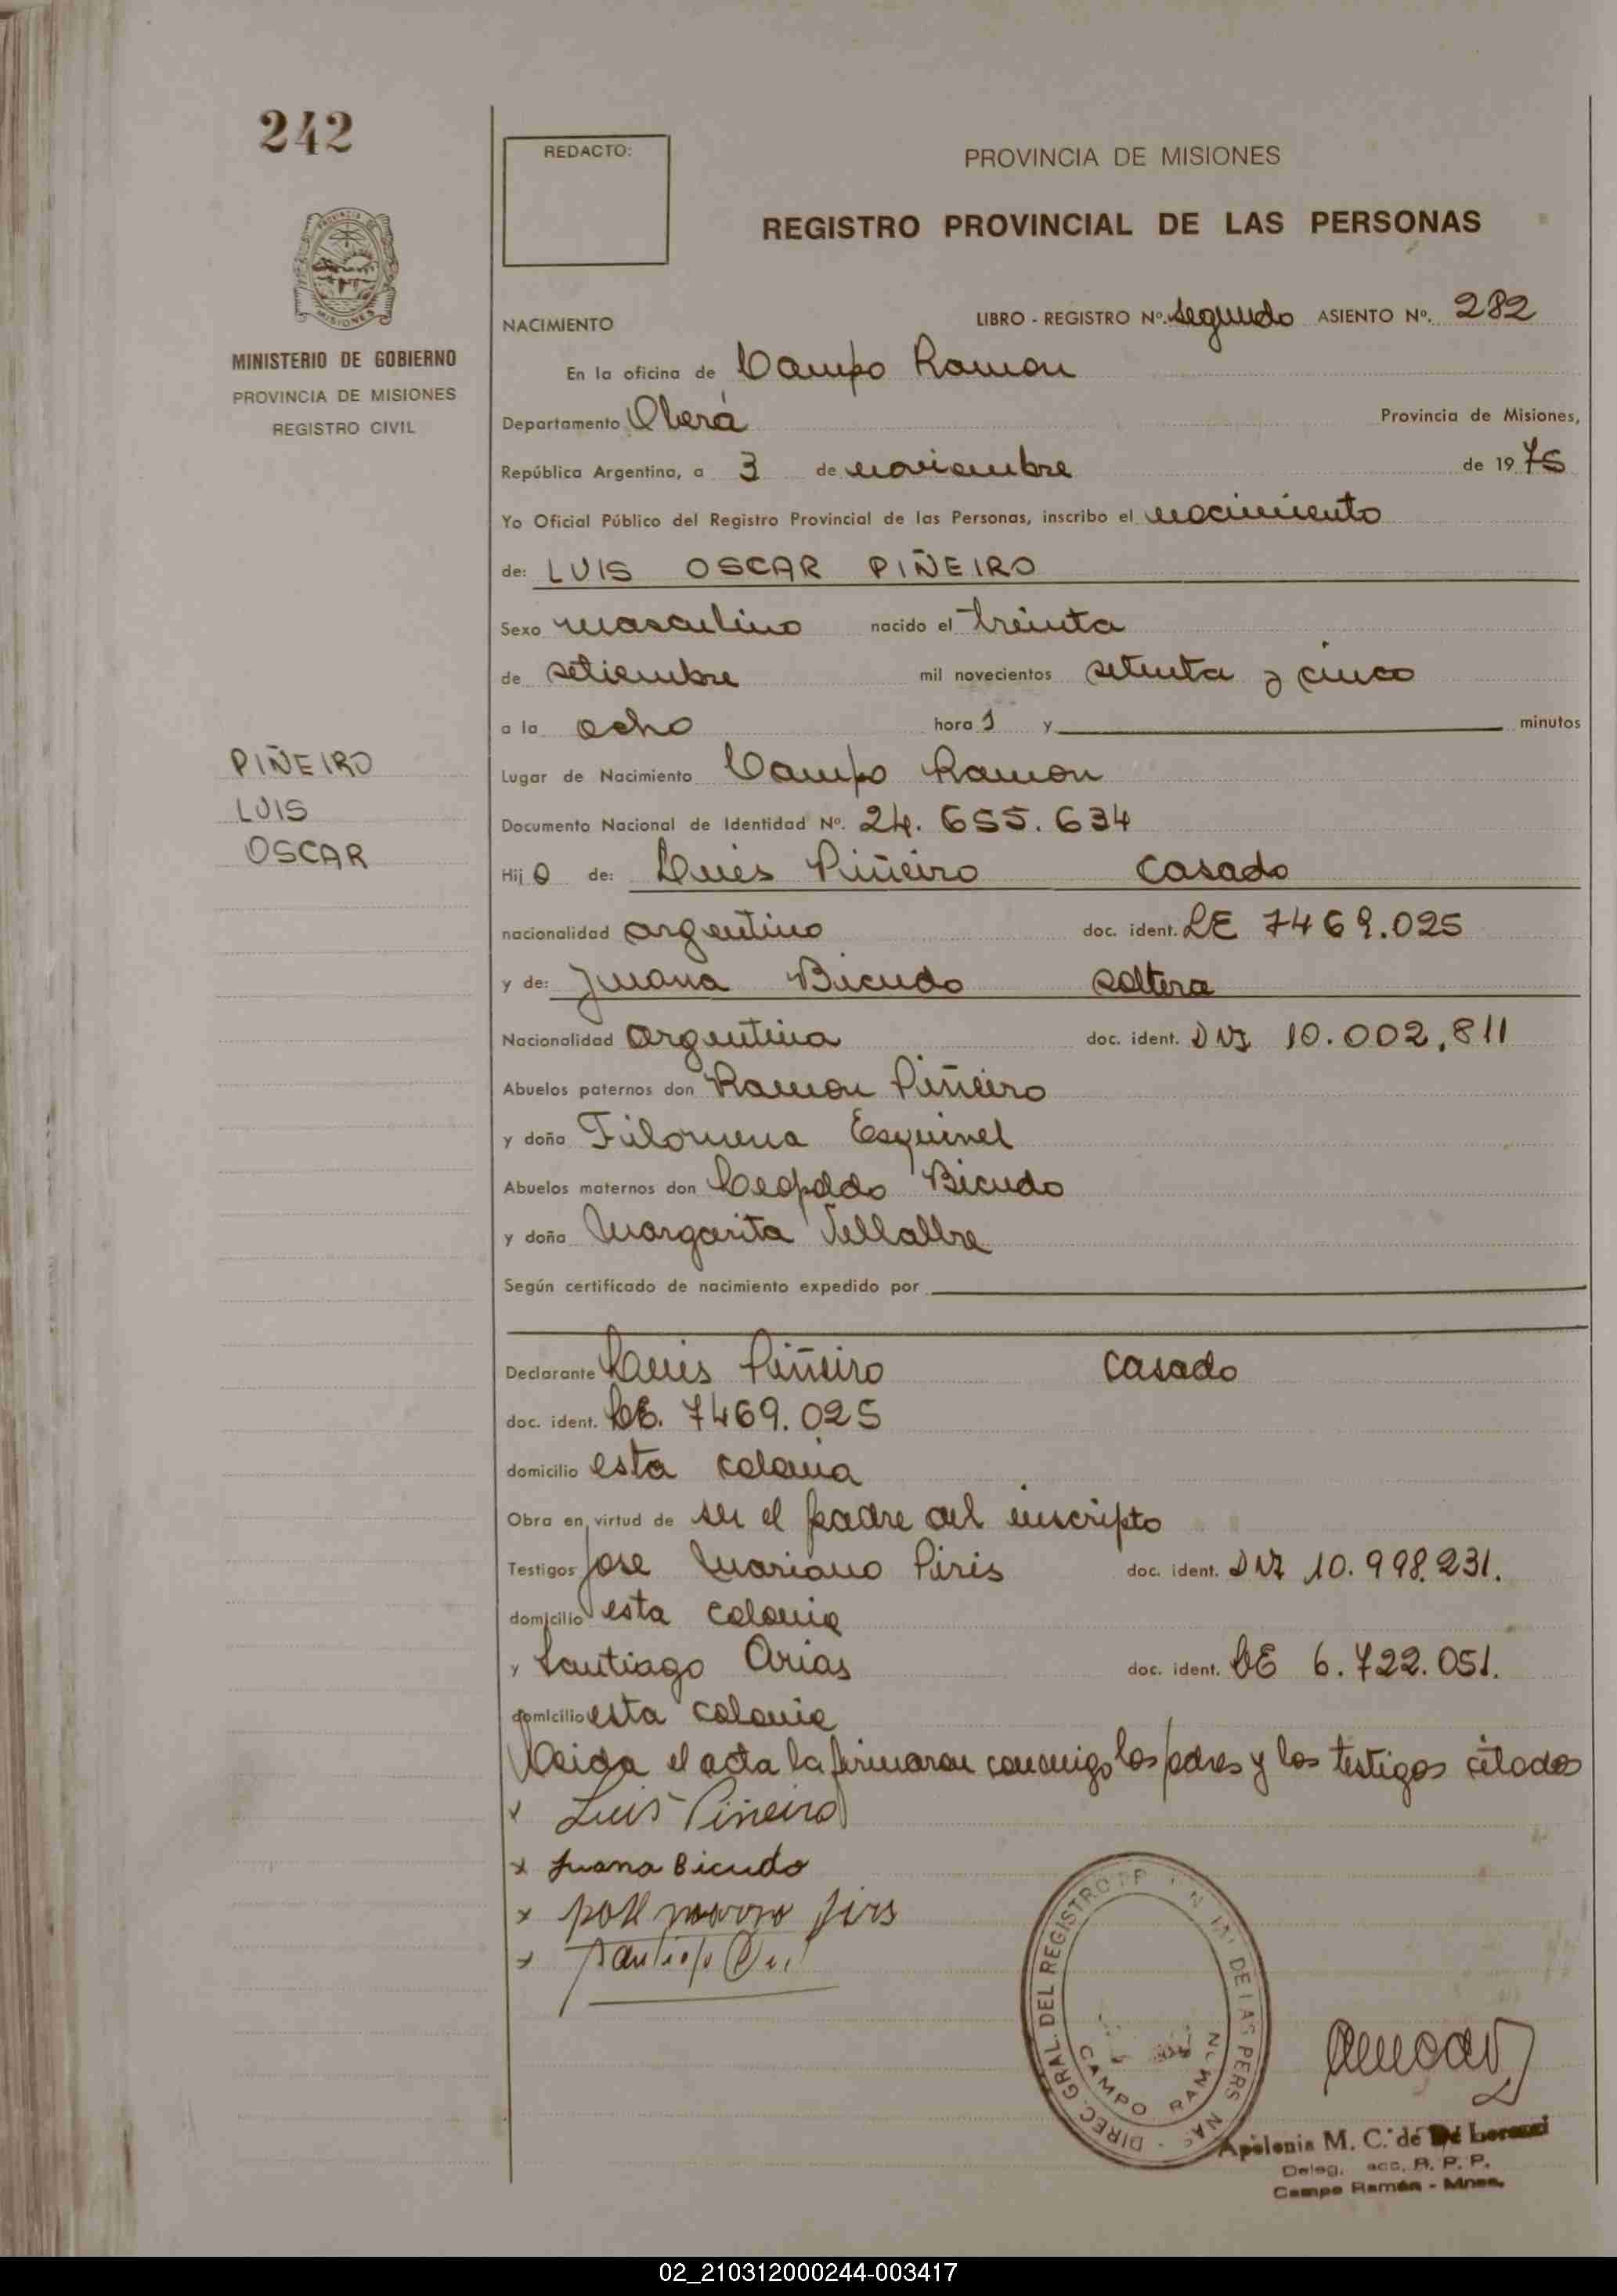 242
REDACTO:
PROVINCIA DE MISIONES
REGISTRO PROVINCIAL DE LAS PERSONAS
MINISTERIO DE GOBIERNO
PROVINCIA DE MISIONES
REGISTRO CIVIL
NACIMIENTO LIBRO - REGISTRO Nº. segundo ASIENTO Nº. 282
En la oficina de Campo Ramon
Departamento Oberá Provincia de Misiones,
República Argentina, a 3 de noviembre de 1975
Yo Oficial Público del Registro Provincial de las Personas, inscribo el nacimiento
de: LUIS OSCAR PIÑEIRO
Sexo masculino nacido el treinta
de setiembre mil novecientos setenta y cinco
a la ocho hora s y minutos
PIÑEIRO
LUIS
OSCAR
Lugar de Nacimiento Campo Ramon
Documento Nacional de Identidad Nº. 24.655.634
Hijo de: Luis Piñeiro casado
nacionalidad argentino doc. ident. LE 7469.025
y de: Juana Bicudo soltera
Nacionalidad argentina doc. ident. DNI 10.002.811
Abuelos paternos don Ramon Piñeiro
y doña Filomena Esquivel
Abuelos maternos don Leopoldo Bicudo
y doña Margarita Vellalbre
Según certificado de nacimiento expedido por
Declarante Luis Piñeiro casado
doc. ident. LE. 7469.025
domicilio esta colonia
Obra en virtud de ser el padre del inscripto
Testigos Jose Mariano Piris doc. ident. DNI 10.998.231.
domicilio esta colonia
y Santiago Arias doc. ident. LE 6.722.051.
domicilio esta colonia
Leida el acta la firmaron conmigo los padres y los testigos citados
x Luis Piñeiro
x Juana Bicudo
x piris
x
DIREC. GRAL. DEL REGISTRO DE LAS PERS
CAMPO RAMON
Apolonia M. C. de De
Deleg. acc. R. P. P.
Campo Ramón - Mnes.
02_210312000244-003417